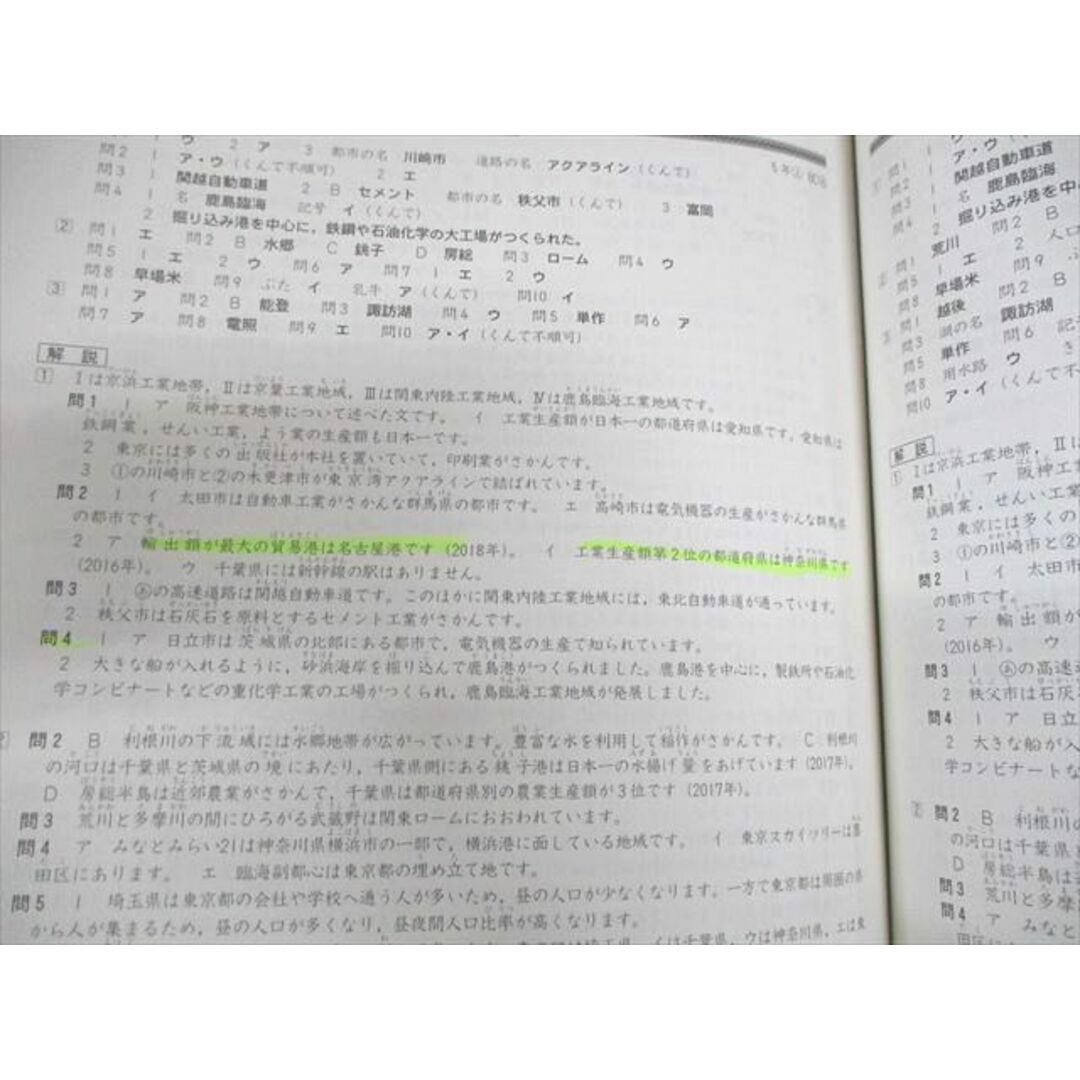 ウ 2 ア 3 都市の名 川崎市 道路の名 アクアライン（くんで）
問2 1 ア・ウ（くんで不順可） 2 エ
5年上
問3 1 関越自動車道 2 B セメント 都市の名 秩父市（くんで） 3 富岡
問4 1 名 鹿島臨海 記号 イ（くんで）
2 掘り込み港を中心に，鉄鋼や石油化学の大工場がつくられた。
② 問1 エ 問2 B 水郷 C 銚子 D 房総 問3 ローム 問4 ウ
問5 1 エ 2 ウ 問6 ア 問7 1 エ 2 ウ
問8 早場米 問9 ぶた イ 乳牛 ア（くんで） 問10 イ
③ 問1 ア 問2 B 能登 問3 諏訪湖 問4 ウ 問5 単作 問6 ア
問7 ア 問8 電照 問9 エ 問10 ア・イ（くんで不順可）
解説
① Ⅰは京浜工業地帯，Ⅱは京葉工業地域，Ⅲは関東内陸工業地域，Ⅳは鹿島臨海工業地域です。
問1 1 ア 阪神工業地帯について述べた文です。 イ 工業生産額が日本一の都道府県は愛知県です。愛知県は
鉄鋼業，せんい工業，よう業の生産額も日本一です。
2 東京には多くの出版社が本社を置いていて，印刷業がさかんです。
3 ①の川崎市と②の木更津市が東京湾アクアラインで結ばれています。
問2 1 イ 太田市は自動車工業がさかんな群馬県の都市です。 エ 高崎市は電気機器の生産がさかんな群馬県
の都市です。
2 ア 輸出額が最大の貿易港は名古屋港です（2018年）。 イ 工業生産額第2位の都道府県は神奈川県です
（2016年）。 ウ 千葉県には新幹線の駅はありません。
問3 1 あの高速道路は関越自動車道です。このほかに関東内陸工業地域には，東北自動車道が通っています。
2 秩父市は石灰石を原料とするセメント工業がさかんです。
問4 1 ア 日立市は茨城県の北部にある都市で，電気機器の生産で知られています。
2 大きな船が入れるように，砂浜海岸を掘り込んで鹿島港がつくられました。鹿島港を中心に，製鉄所や石油化
学コンビナートなどの重化学工業の工場がつくられ，鹿島臨海工業地域が発展しました。
② 問2 B 利根川の下流域には水郷地帯が広がっています。豊富な水を利用して稲作がさかんです。 C 利根川
の河口は千葉県と茨城県の境にあたり，千葉県側にある銚子港は日本一の水揚げ量をあげています（2017年）。
D 房総半島は近郊農業がさかんで，千葉県は都道府県別の農業生産額が3位です（2017年）。
問3 荒川と多摩川の間にひろがる武蔵野は関東ロームにおおわれています。
問4 ア みなとみらい21は神奈川県横浜市の一部で，横浜港に面している地域です。 イ 東京スカイツリーは墨
田区にあります。 エ 臨海副都心は東京都の埋め立て地です。
問5 1 埼玉県は東京都の会社や学校へ通う人が多いため，昼の人口が少なくなります。一方で東京都は周囲の県
から人が集まるため，昼の人口が多くなり，昼夜間人口比率が高くなります。
イは千葉県，ウは神奈川県，エは東
問1 1 ウ
問2 1 ア・ウ（く
問3 1 関越自動車道
問4 1 名 鹿島臨海
2 掘り込み港を
② 問1 荒川 問2 B
問5 1 エ 2 人口
問8 早場米 問9 ぶ
③ 問1 越後 問2 B
問3 湖の名 諏訪湖
問5 単作 問6 記
問8 用水路 ウ さ
問10 ア・イ（くんで不
解説
① Ⅰは京浜工業地帯，Ⅱは
問1 1 ア 阪神工業
鉄鋼業，せんい工業
2 東京には多くの
3 ①の川崎市と②
問2 1 イ 太田市
の都市です。
2 ア 輸出額が
（2016年）。 ウ
問3 1 あの高速道
2 秩父市は石灰
問4 1 ア 日立
2 大きな船が入
学コンビナートな
② 問2 B 利根川の
の河口は千葉県と
D 房総半島
問3 荒川と多摩
問4 ア みなと
田区に